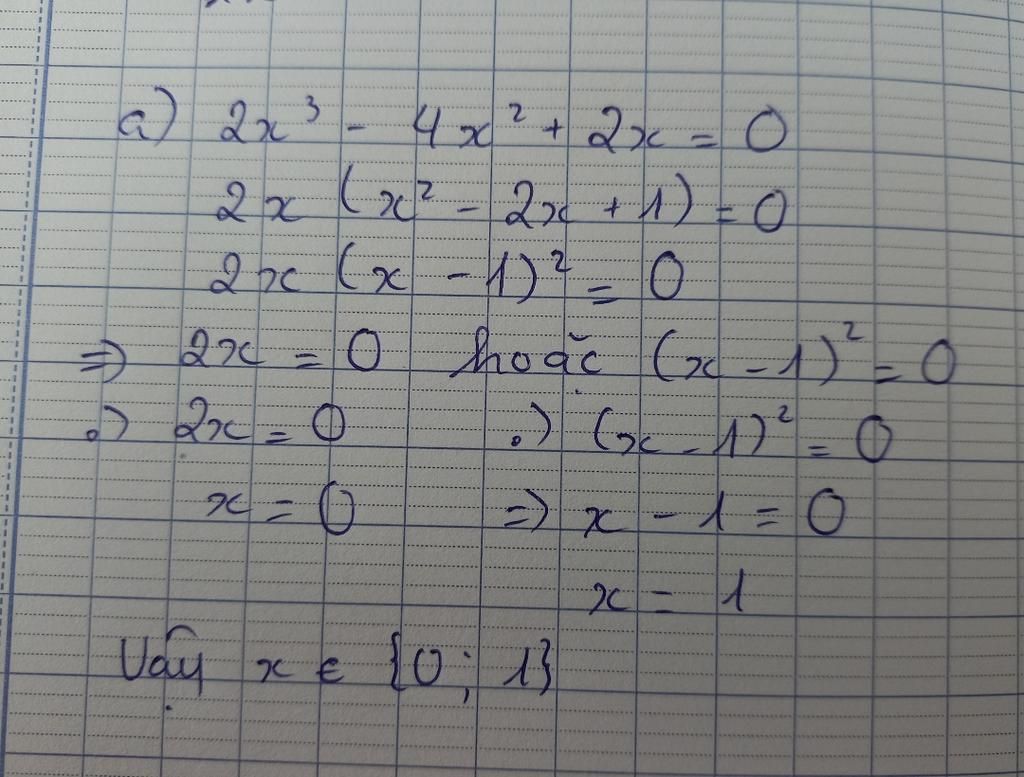 a) 2x³ - 4x² + 2x = 0
2x (x² - 2x + 1) = 0
2x (x - 1)² = 0
=> 2x = 0 hoặc (x - 1)² = 0
.) 2x = 0 .) (x - 1)² = 0
x = 0 => x - 1 = 0
x = 1
Vậy x ∈ {0; 1}